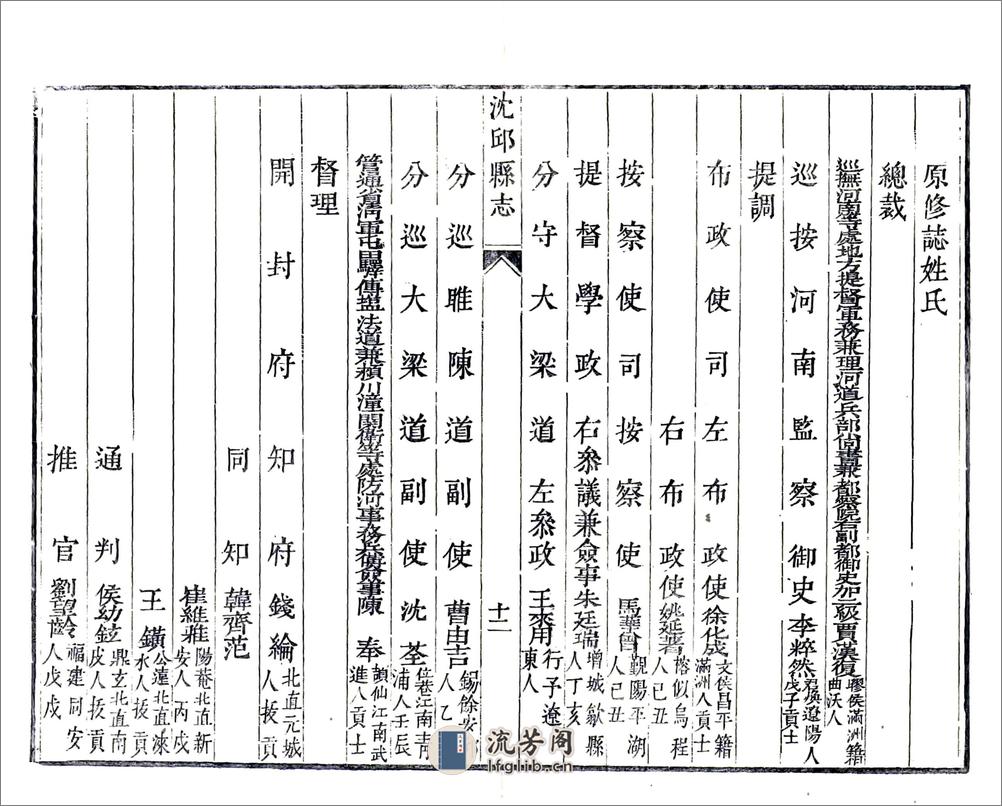 原修誌姓氏
總裁
巡撫河南等處地方提督軍務兼理河道兵部尚書兼都察院右副都御史加一級賈漢復膠侯滿洲籍曲沃人
巡按河南監察御史李粹然遼陽人戊子貢士
提調
布政使司左布政使徐化成文侯昌平籍滿洲人貢士
右布政使姚延著榕似烏程人己丑
按察使司按察使馬華曾覲陽平湖人己丑
提督學政右叅議兼僉事朱廷瑞增城歙縣人丁亥
沈邱縣志
十二
分守大梁道左叅政王來用行子遼東人
分巡睢陳道副使曹由吉錫餘安人乙
分巡大梁道副使沈荃位菴江南青浦人壬辰
管通省清軍屯田驛傳鹽法道兼潁川潼關衛等處防河事務僉事陳奉仙江南武進人貢士
督理
開封府知府錢綸北直元城人拔貢
同知韓齊范
崔維雅陽菴北直新安人丙戌
王鐄公遠北直淶水人拔貢
通判侯幼鉉鼎玄北直南皮人拔貢
推官劉望齡福建同安人戊戌
流芳阁
lfglib.cn